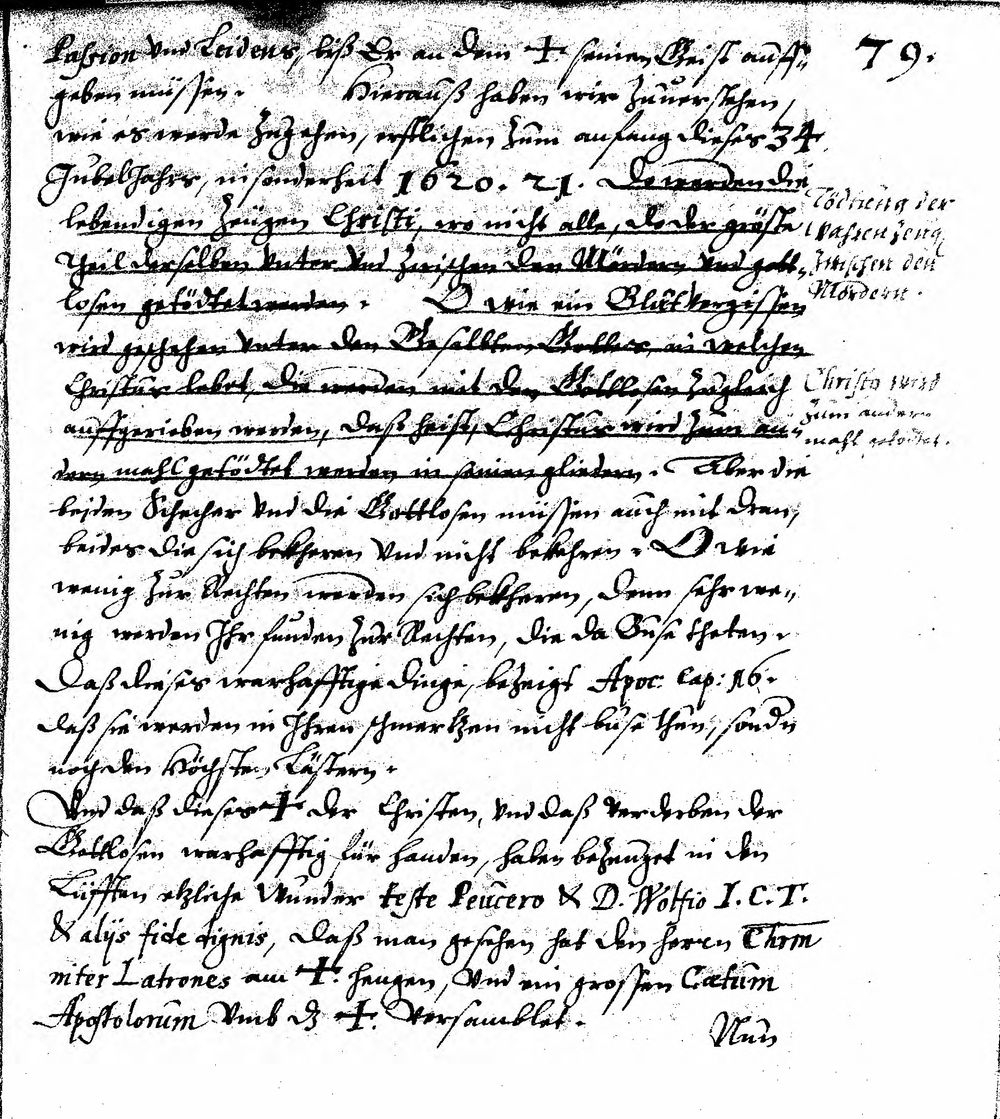 79.
Passion vnd Leidens, biß Er an dem ✝. seinen Geist auff„
geben müssen. Hierauß haben wir Zuuerstehen,
wie es werde Zugehen, erstlichen Zum anfang dieses 34
JubelJahrs, insonderheit 1620. 21. Do werden die
lebendigen Zeugen Christi, wo nicht alle, do der gröste
Theil derselben vnter vnd Zwischen den Mördern vnd gott„
losen getödtet werden. O wie ein Blutvergissen
wird geschehen vnter den Gesalbten Gottes, in welchen
Christus lebet, die werden mit den Gottlosen Zugleich
auffgerieben werden, daß heist, Christus wird Zum an„
dern mahl getödtet werden in seinen gliedern. Aber die
beiden Schecher vnd die Gottlosen müssen auch mit dran,
beides die sich bekheren vnd nicht bekehren. O wie
wenig Zur Rechten werden sich bekheren, denn sehr we„
nig werden Ihr funden Zur Rechten, die da Buse theten.
Daß dieses warhafftige dinge, bezeigt Apoc. Cap: 16.
daß sie werden in Ihren schmertzen nicht buse thun, sondn
noch den Höchsten Lästern.
Vnd daß dieses ✝ der Christen, vnd daß verderben der
Gottlosen warhafftig für handen, haben beZeuget in den
Lüfften etzliche Wunder teste Peucero & D. Wolfio I. C. T.
& alijs fide dignis, daß man gesehen hat den herren Chrm
inter Latrones am ✝. hengen, vnd ein grossen Cœtum
Apostolorum vmb dz ✝. versamblet.
Nun
Tödtung der
Wahren Zeug
Zwischen den
Mördern.
Christus wird
Zum andern
mahl getödtet.